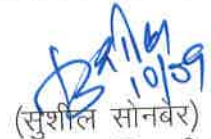 10/09
(सुशील सोनबेर)